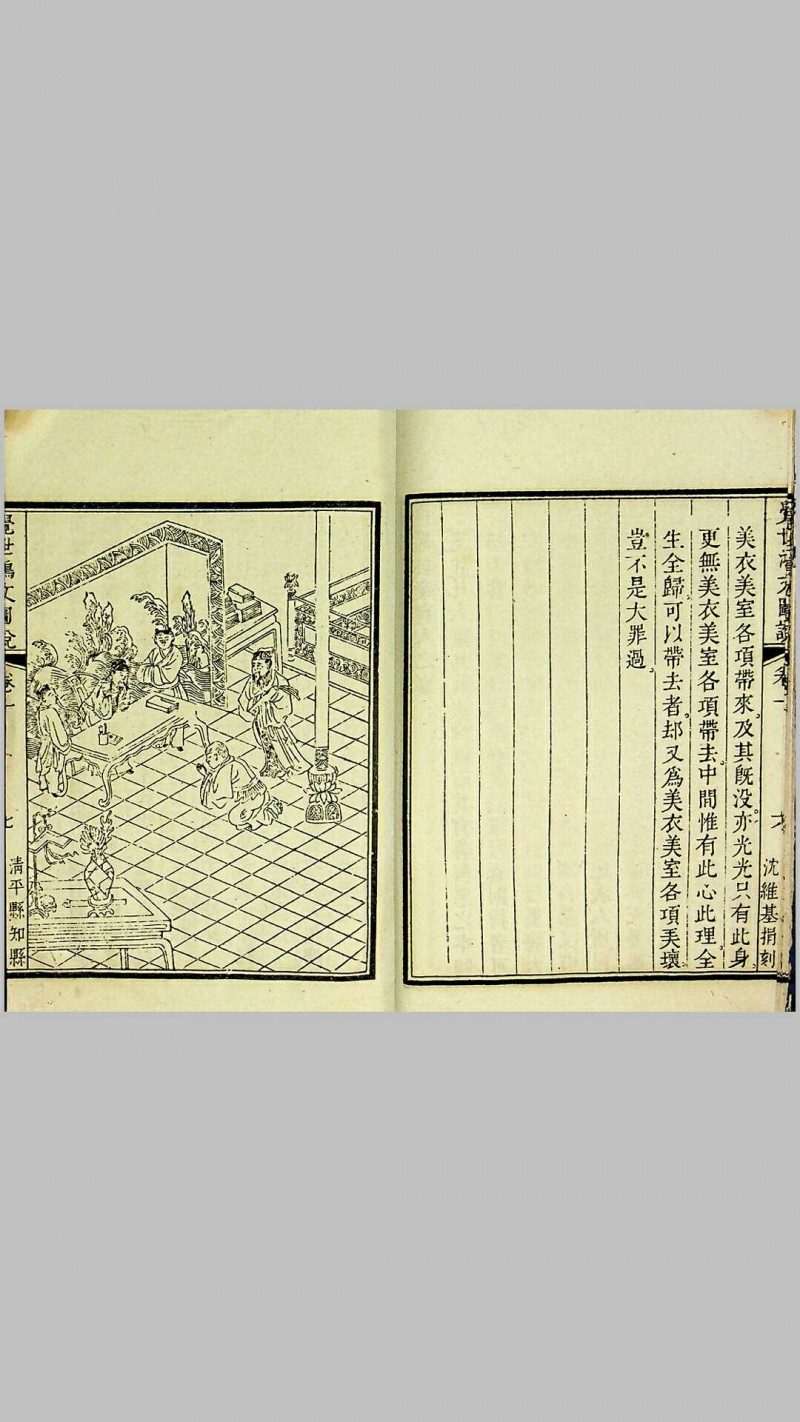 卷一
沈維基捐刻
美衣美室各項帶來。及其既没。亦光光只有此身。
更無美衣美室各項帶去。中間惟有此心此理。全
生全歸。可以帶去者。却又爲美衣美室各項弄壞。
豈不是大罪過。
覺世
文圖說
卷一
七
清平縣知縣